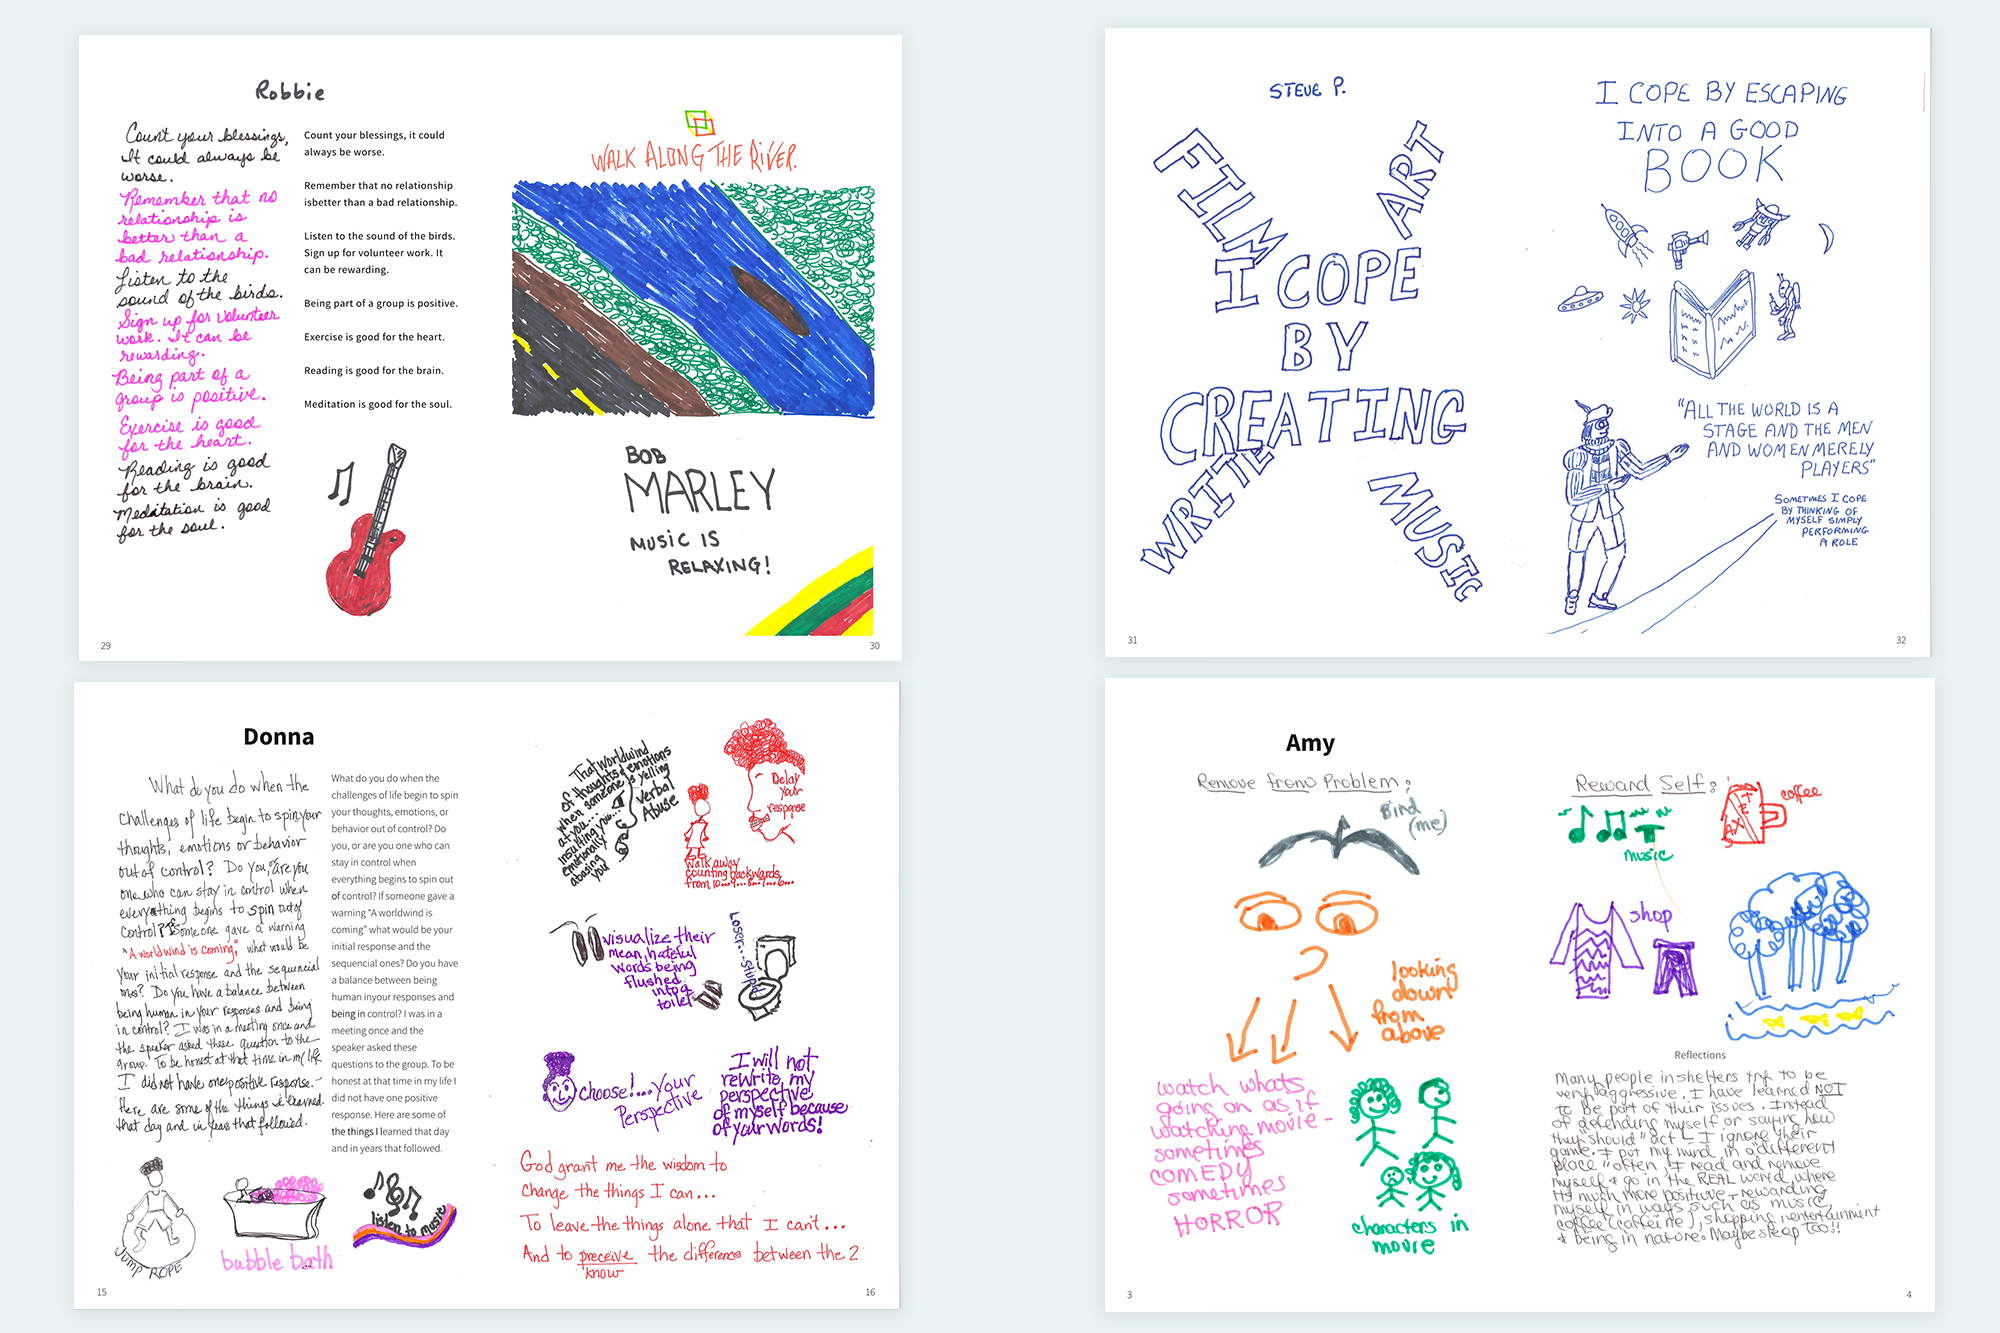 Robbie
Count your blessings,
It could always be
worse.
Remember that no
relationship is
better than a
bad relationship.
Listen to the
sound of the birds.
Sign up for volunteer
work. It can be
rewarding.
Being part of a
group is positive.
Exercise is good
for the heart.
Reading is good
for the brain.
Meditation is good
for the soul.
Count your blessings, it could
always be worse.
Remember that no relationship
isbetter than a bad relationship.
Listen to the sound of the birds.
Sign up for volunteer work. It
can be rewarding.
Being part of a group is positive.
Exercise is good for the heart.
Reading is good for the brain.
Meditation is good for the soul.
29
WALK ALONG THE RIVER.
BOB
MARLEY
MUSIC IS
RELAXING!
30
STEVE P.
FILM
ART
I COPE
BY
CREATING
WRITE
MUSIC
31
I COPE BY ESCAPING
INTO A GOOD
BOOK
"ALL THE WORLD IS A
STAGE AND THE MEN
AND WOMEN MERELY
PLAYERS"
SOMETIMES I COPE
BY THINKING OF
MYSELF SIMPLY
PERFORMING
A ROLE
32
Donna
What do you do when the
challenges of life begin to spin your
thoughts, emotions or behavior
out of control? Do you, or are you
one who can stay in control when
everything begins to spin out of
control? If someone gave a warning
"A world wind is coming," what would be
your initial response and the sequencial
ones? Do you have a balance between
being human in your responses and being
in control? I was in a meeting once and
the speaker asked these question to the
group. To be honest at that time in my life
I did not have one positive response.-
Here are some of the things I learned
that day and in years that followed.
What do you do when the
challenges of life begin to spin
your thoughts, emotions, or
behavior out of control? Do
you, or are you one who can
stay in control when
everything begins to spin out
of control? If someone gave a
warning "A worldwind is
coming" what would be your
initial response and the
sequential ones? Do you have
a balance between being
human inyour responses and
being in control? I was in a
meeting once and the
speaker asked these
questions to the group. To be
honest at that time in my life I
did not have one positive
response. Here are some of
the things I learned that day
and in years that followed.
Jump ROPE
bubble bath
listen to music
15
That worldwind
of thoughts & emotions
when someone is yelling
at you...
insulting you...
emotionally
abusing
you
verbal
Abuse
Delay
your
response
walk away
counting backwards
from 10...9...8...7...6...
visualize their
mean, hateful
words being
flushed
into a
toilet
Loser...stupid
choose!....your
Perspective
I will not
rewrite my
perspective
of myself because
of your words!
God grant me the wisdom to
change the things I can...
To leave the things alone that I can't...
And to preceive the difference between the 2
know
16
Amy
Remove from Problem:
Bird
(me)
looking
down
from
above
watch whats
going on as if
watching movie -
sometimes
COMEDY
sometimes
HORROR
characters in
movie
3
Reward Self:
music
coffee
shop
Reflections
Many people in shelters try to be
very aggressive. I have learned NOT
to be part of their issues. Instead
of defending myself or saying how
they "should" act - I ignore their
game. I put my mind in a different
place "often, I read and remove
myself & go in the REAL world, where
its much more positive - rewarding
myself in ways such as music,
coffee (caffeine), shopping, entertainment
& being in nature. Maybe sleep too!!
4